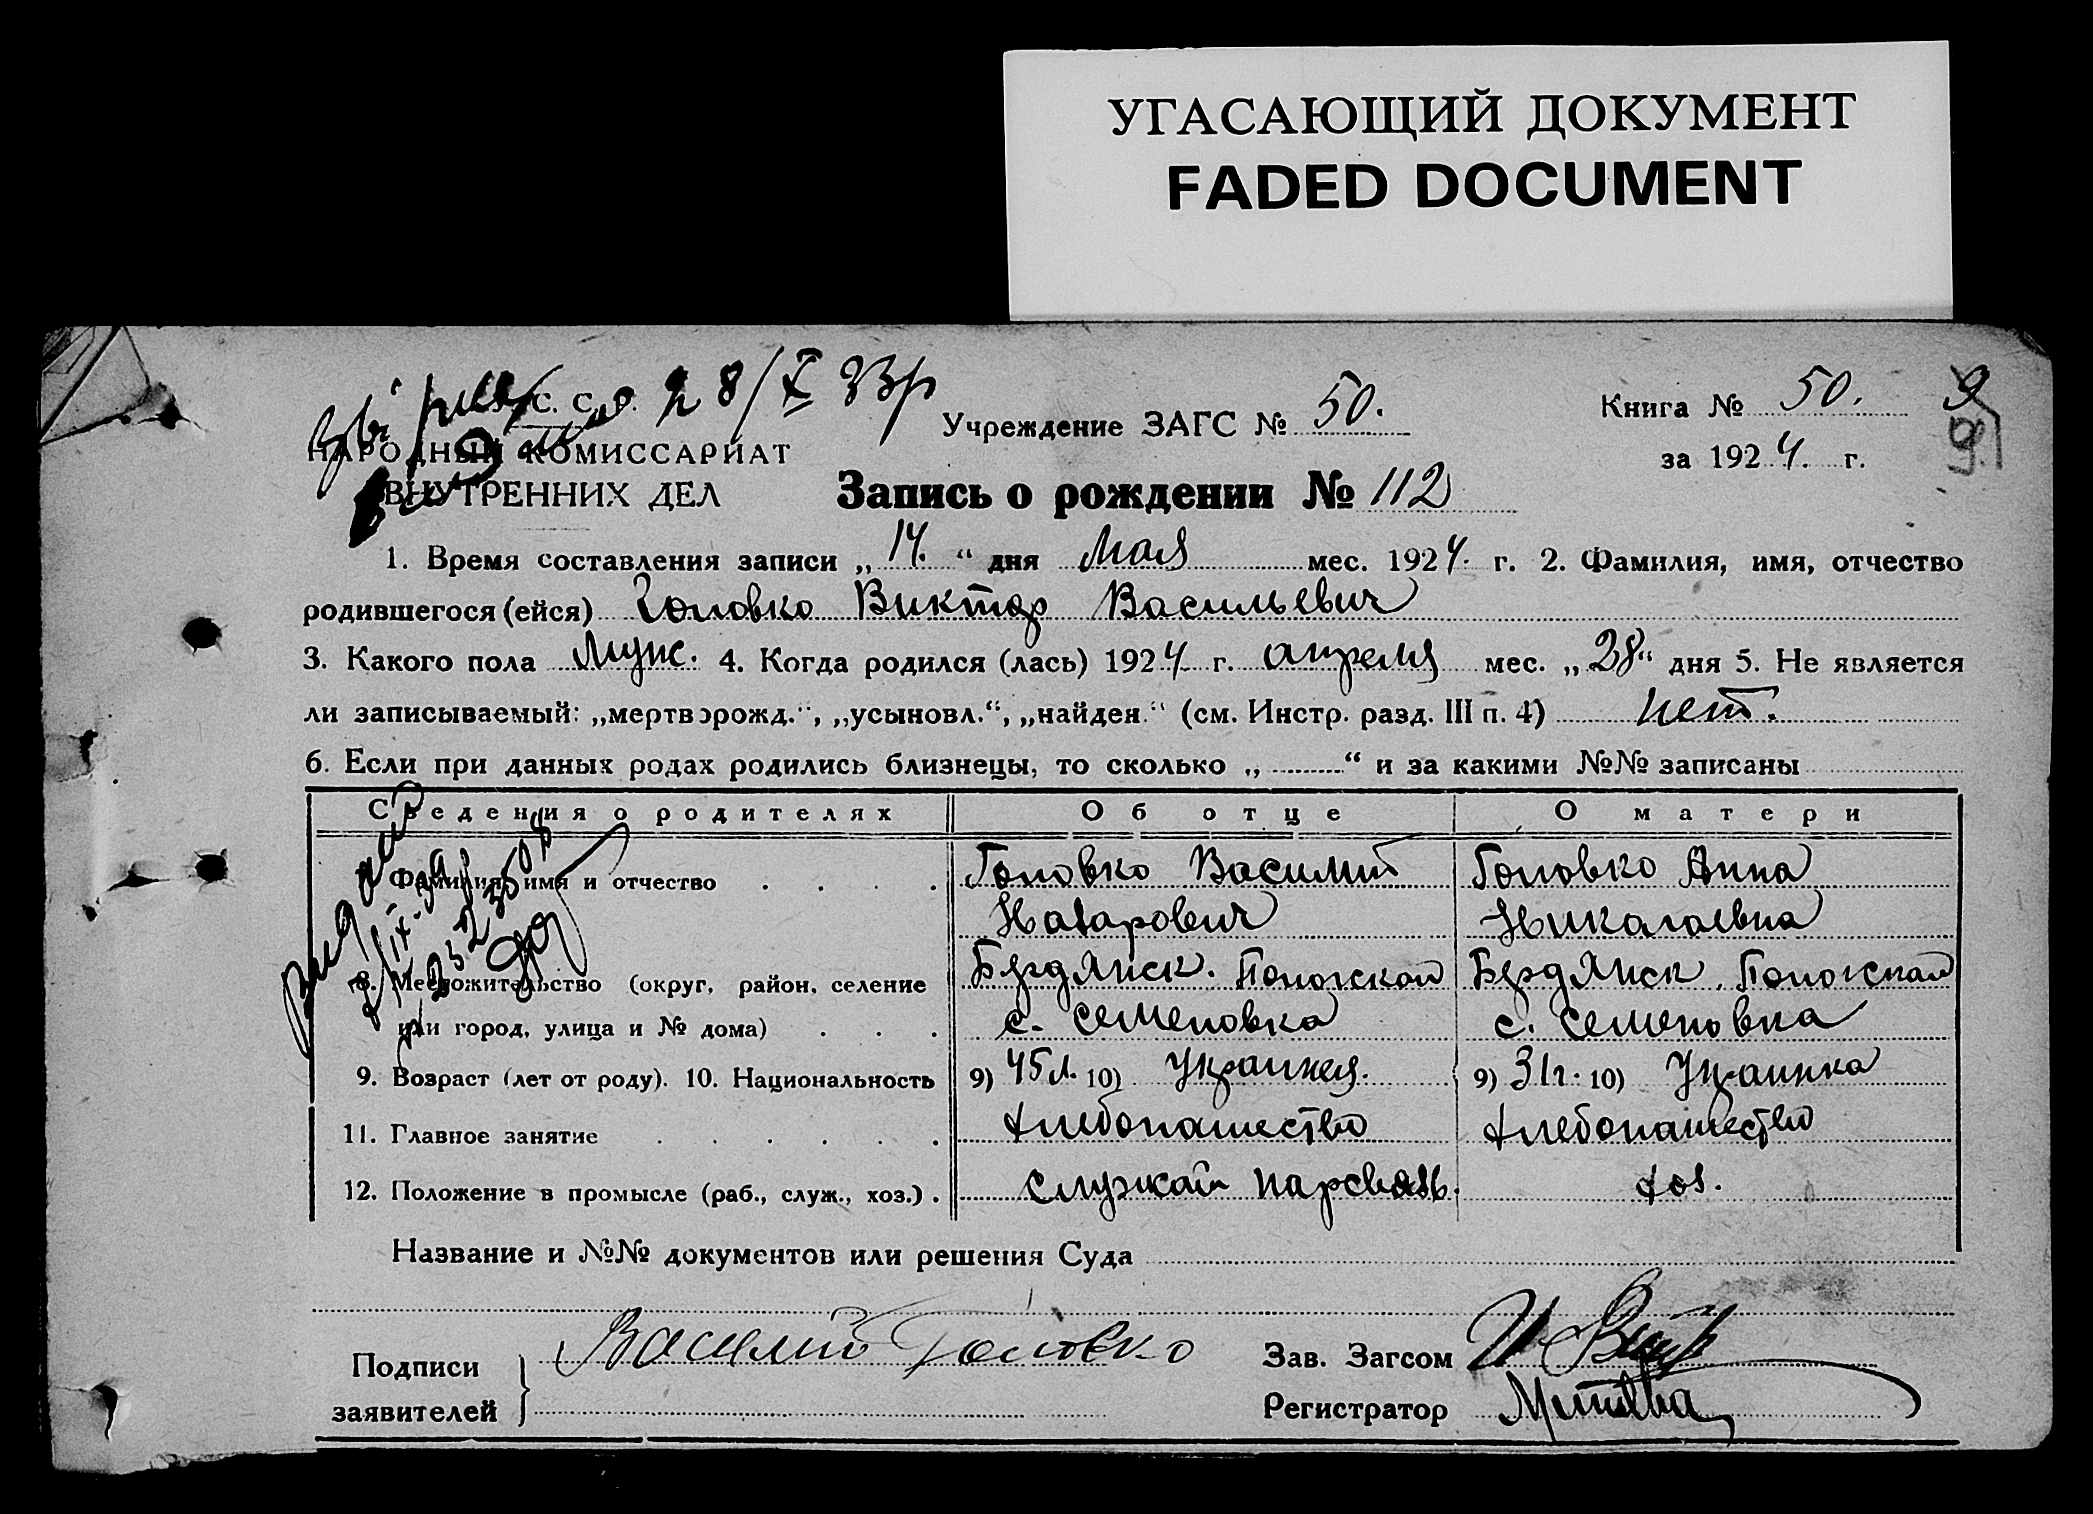 УГАСАЮЩИЙ ДОКУМЕНТ
FADED DOCUMENT
28/X 33р
С. С. Р.
НАРОДНЫЙ КОМИССАРИАТ
ВНУТРЕННИХ ДЕЛ
Учреждение ЗАГС № 50.
Книга № 50.
9
за 1924. г.
9
Запись о рождении № 112
1. Время составления записи „14.“ дня Мая мес. 1924. г. 2. Фамилия, имя, отчество
родившегося (ейся) Головко Виктор Васильевич
3. Какого пола Муж. 4. Когда родился (лась) 1924 г. апреля мес. „28“ дня 5. Не является
ли записываемый: „мертворожд.“, „усыновл.“, „найден.“ (см. Инстр. разд. III п. 4) нет.
6. Если при данных родах родились близнецы, то сколько „ “ и за какими №№ записаны
Сведения о родителях Об отце О матери
Фамилия, имя и отчество Головко Василий Головко Анна
Назарович Николаевна
8. Местожительство (округ, район, селение Бердянск. Пологской Бердянск. Пологской
или город, улица и № дома) с. Семеновка с. Семеновка
9. Возраст (лет от роду). 10. Национальность 9) 45 л. 10) Украинец. 9) 31 г. 10) Украинка
11. Главное занятие Хлебопашество Хлебопашество
12. Положение в промысле (раб., служ., хоз.). служай нарсвязь. хоз.
Название и №№ документов или решения Суда
Подписи
заявителей
Василий Головко
Зав. Загсом
Регистратор